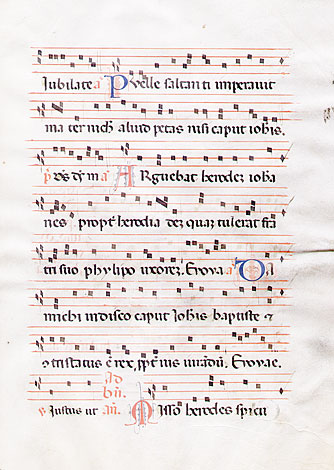 Iubilate a Puelle saltanti imperavit
mater nichil aliud petas nisi caput iohis.
ps Dns m a Arguebat herodez ioha
nes propt herodia dez quaz tulerat fra
tri suo phylipo uxorez. Evovae a Da
michi in disco caput Johis baptiste &
& tristatus e rex, ppt ius iurandu. Evovae.
ad
v Iustus ut bn. an. Misso herodes spicu